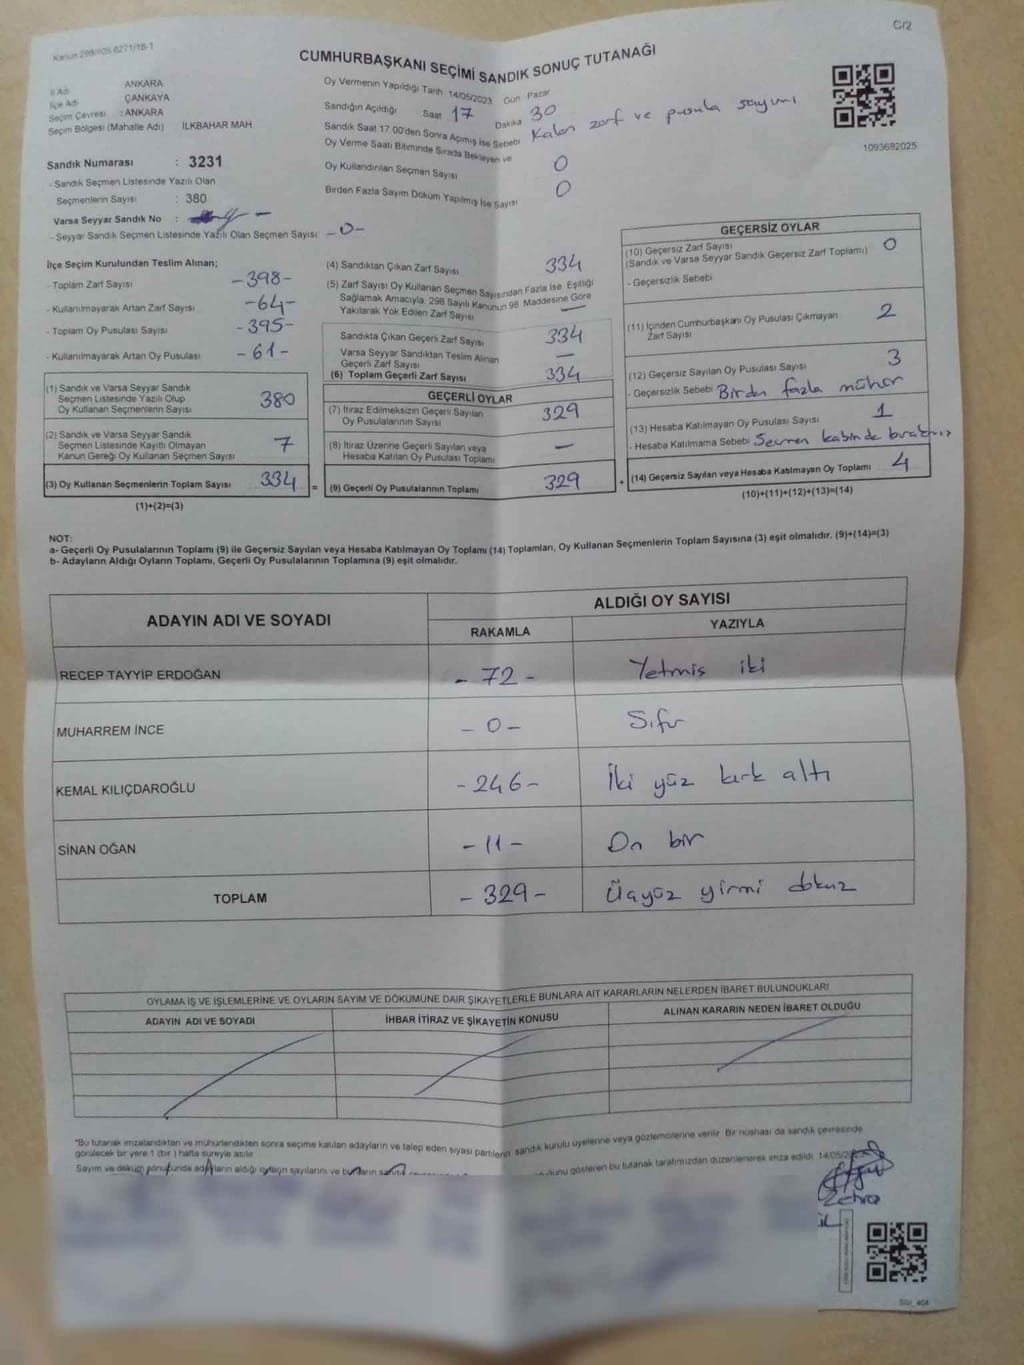 Kanun 298/105 6271/18-1
C/2
CUMHURBAŞKANI SEÇİMİ SANDIK SONUÇ TUTANAĞI
İl Adı ANKARA
İlçe Adı ÇANKAYA
Seçim Çevresi : ANKARA
Seçim Bölgesi (Mahalle Adı) İLKBAHAR MAH
Sandık Numarası : 3231
- Sandık Seçmen Listesinde Yazılı Olan
Seçmenlerin Sayısı : 380
Varsa Seyyar Sandık No :
- Seyyar Sandık Seçmen Listesinde Yazılı Olan Seçmen Sayısı: -0-
Oy Vermenin Yapıldığı Tarih 14/05/2023 Gün Pazar
Sandığın Açıldığı Saat 17 Dakika 30
Sandık Saat 17.00'den Sonra Açılmış İse Sebebi Kalan zarf ve pusula sayımı
Oy Verme Saati Bitiminde Sırada Bekleyen ve
Oy Kullandırılan Seçmen Sayısı 0
Birden Fazla Sayım Döküm Yapılmış İse Sayısı 0
1093682025
İlçe Seçim Kurulundan Teslim Alınan;
- Toplam Zarf Sayısı -398-
- Kullanılmayarak Artan Zarf Sayısı -64-
- Toplam Oy Pusulası Sayısı -395-
- Kullanılmayarak Artan Oy Pusulası -61-
(1) Sandık ve Varsa Seyyar Sandık
Seçmen Listesinde Yazılı Olup
Oy Kullanan Seçmenlerin Sayısı 380
(2) Sandık ve Varsa Seyyar Sandık
Seçmen Listesinde Kayıtlı Olmayan
Kanun Gereği Oy Kullanan Seçmen Sayısı 7
(3) Oy Kullanan Seçmenlerin Toplam Sayısı 334 =
(1)+(2)=(3)
(4) Sandıktan Çıkan Zarf Sayısı 334
(5) Zarf Sayısı Oy Kullanan Seçmen Sayısından Fazla İse, Eşitliği
Sağlamak Amacıyla, 298 Sayılı Kanunun 98. Maddesine Göre
Yakılarak Yok Edilen Zarf Sayısı —
Sandıkta Çıkan Geçerli Zarf Sayısı 334
Varsa Seyyar Sandıktan Teslim Alınan
Geçerli Zarf Sayısı —
(6) Toplam Geçerli Zarf Sayısı 334
GEÇERLİ OYLAR
(7) İtiraz Edilmeksizin Geçerli Sayılan
Oy Pusulalarının Sayısı 329
(8) İtiraz Üzerine Geçerli Sayılan veya
Hesaba Katılan Oy Pusulası Toplamı —
(9) Geçerli Oy Pusulalarının Toplamı 329 +
GEÇERSİZ OYLAR
(10) Geçersiz Zarf Sayısı 0
(Sandık ve Varsa Seyyar Sandık Geçersiz Zarf Toplamı)
- Geçersizlik Sebebi
(11) İçinden Cumhurbaşkanı Oy Pusulası Çıkmayan
Zarf Sayısı 2
(12) Geçersiz Sayılan Oy Pusulası Sayısı 3
- Geçersizlik Sebebi Birden fazla mühür
(13) Hesaba Katılmayan Oy Pusulası Sayısı 1
- Hesaba Katılmama Sebebi Seçmen kabinde bırakmış
(14) Geçersiz Sayılan veya Hesaba Katılmayan Oy Toplamı 4
(10)+(11)+(12)+(13)=(14)
NOT:
a- Geçerli Oy Pusulalarının Toplamı (9) ile Geçersiz Sayılan veya Hesaba Katılmayan Oy Toplamı (14) Toplamları, Oy Kullanan Seçmenlerin Toplam Sayısına (3) eşit olmalıdır. (9)+(14)=(3)
b- Adayların Aldığı Oyların Toplamı, Geçerli Oy Pusulalarının Toplamına (9) eşit olmalıdır.
ADAYIN ADI VE SOYADI
ALDIĞI OY SAYISI
RAKAMLA YAZIYLA
RECEP TAYYİP ERDOĞAN - 72 - Yetmiş iki
MUHARREM İNCE - 0 - Sıfır
KEMAL KILIÇDAROĞLU -246- İki yüz kırk altı
SİNAN OĞAN -11- On bir
TOPLAM -329- Üçyüz yirmi dokuz
OYLAMA İŞ VE İŞLEMLERİNE VE OYLARIN SAYIM VE DÖKÜMÜNE DAİR ŞİKAYETLERLE BUNLARA AİT KARARLARIN NELERDEN İBARET BULUNDUKLARI
ADAYIN ADI VE SOYADI İHBAR İTİRAZ VE ŞİKAYETİN KONUSU ALINAN KARARIN NEDEN İBARET OLDUĞU
*Bu tutanak imzalandıktan ve mühürlendikten sonra seçime katılan adayların ve talep eden siyasi partilerin sandık kurulu üyelerine veya gözlemcilerine verilir. Bir nüshası da sandık çevresinde
görülecek bir yere 1 (bir) hafta süreyle asılır.
Sayım ve döküm sonucunda adayların aldığı oyların sayılarını ve bunların gösteren bu tutanak tarafımızdan düzenlenerek imza edildi.